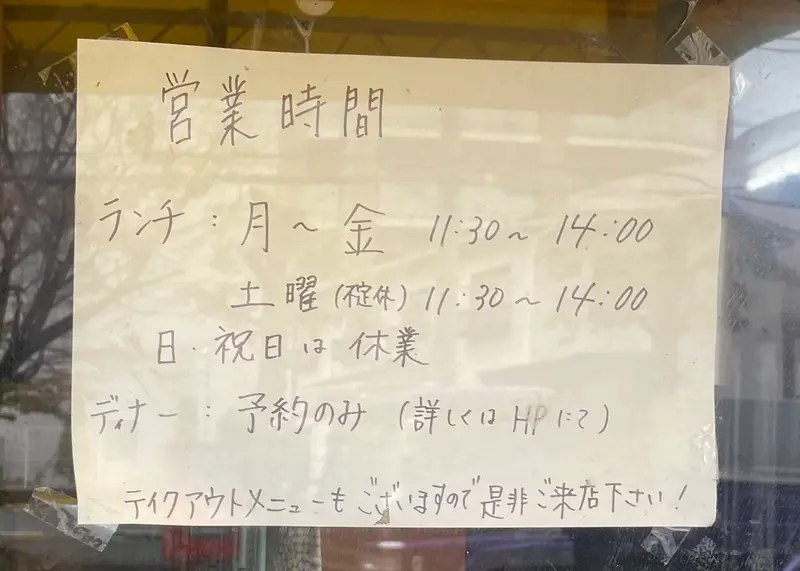 営業時間
ランチ：月～金 11:30～14:00
土曜(不定休) 11:30～14:00
日・祝日は休業
ディナー：予約のみ (詳しくはHPにて)
テイクアウトメニューもございますので是非ご来店下さい！